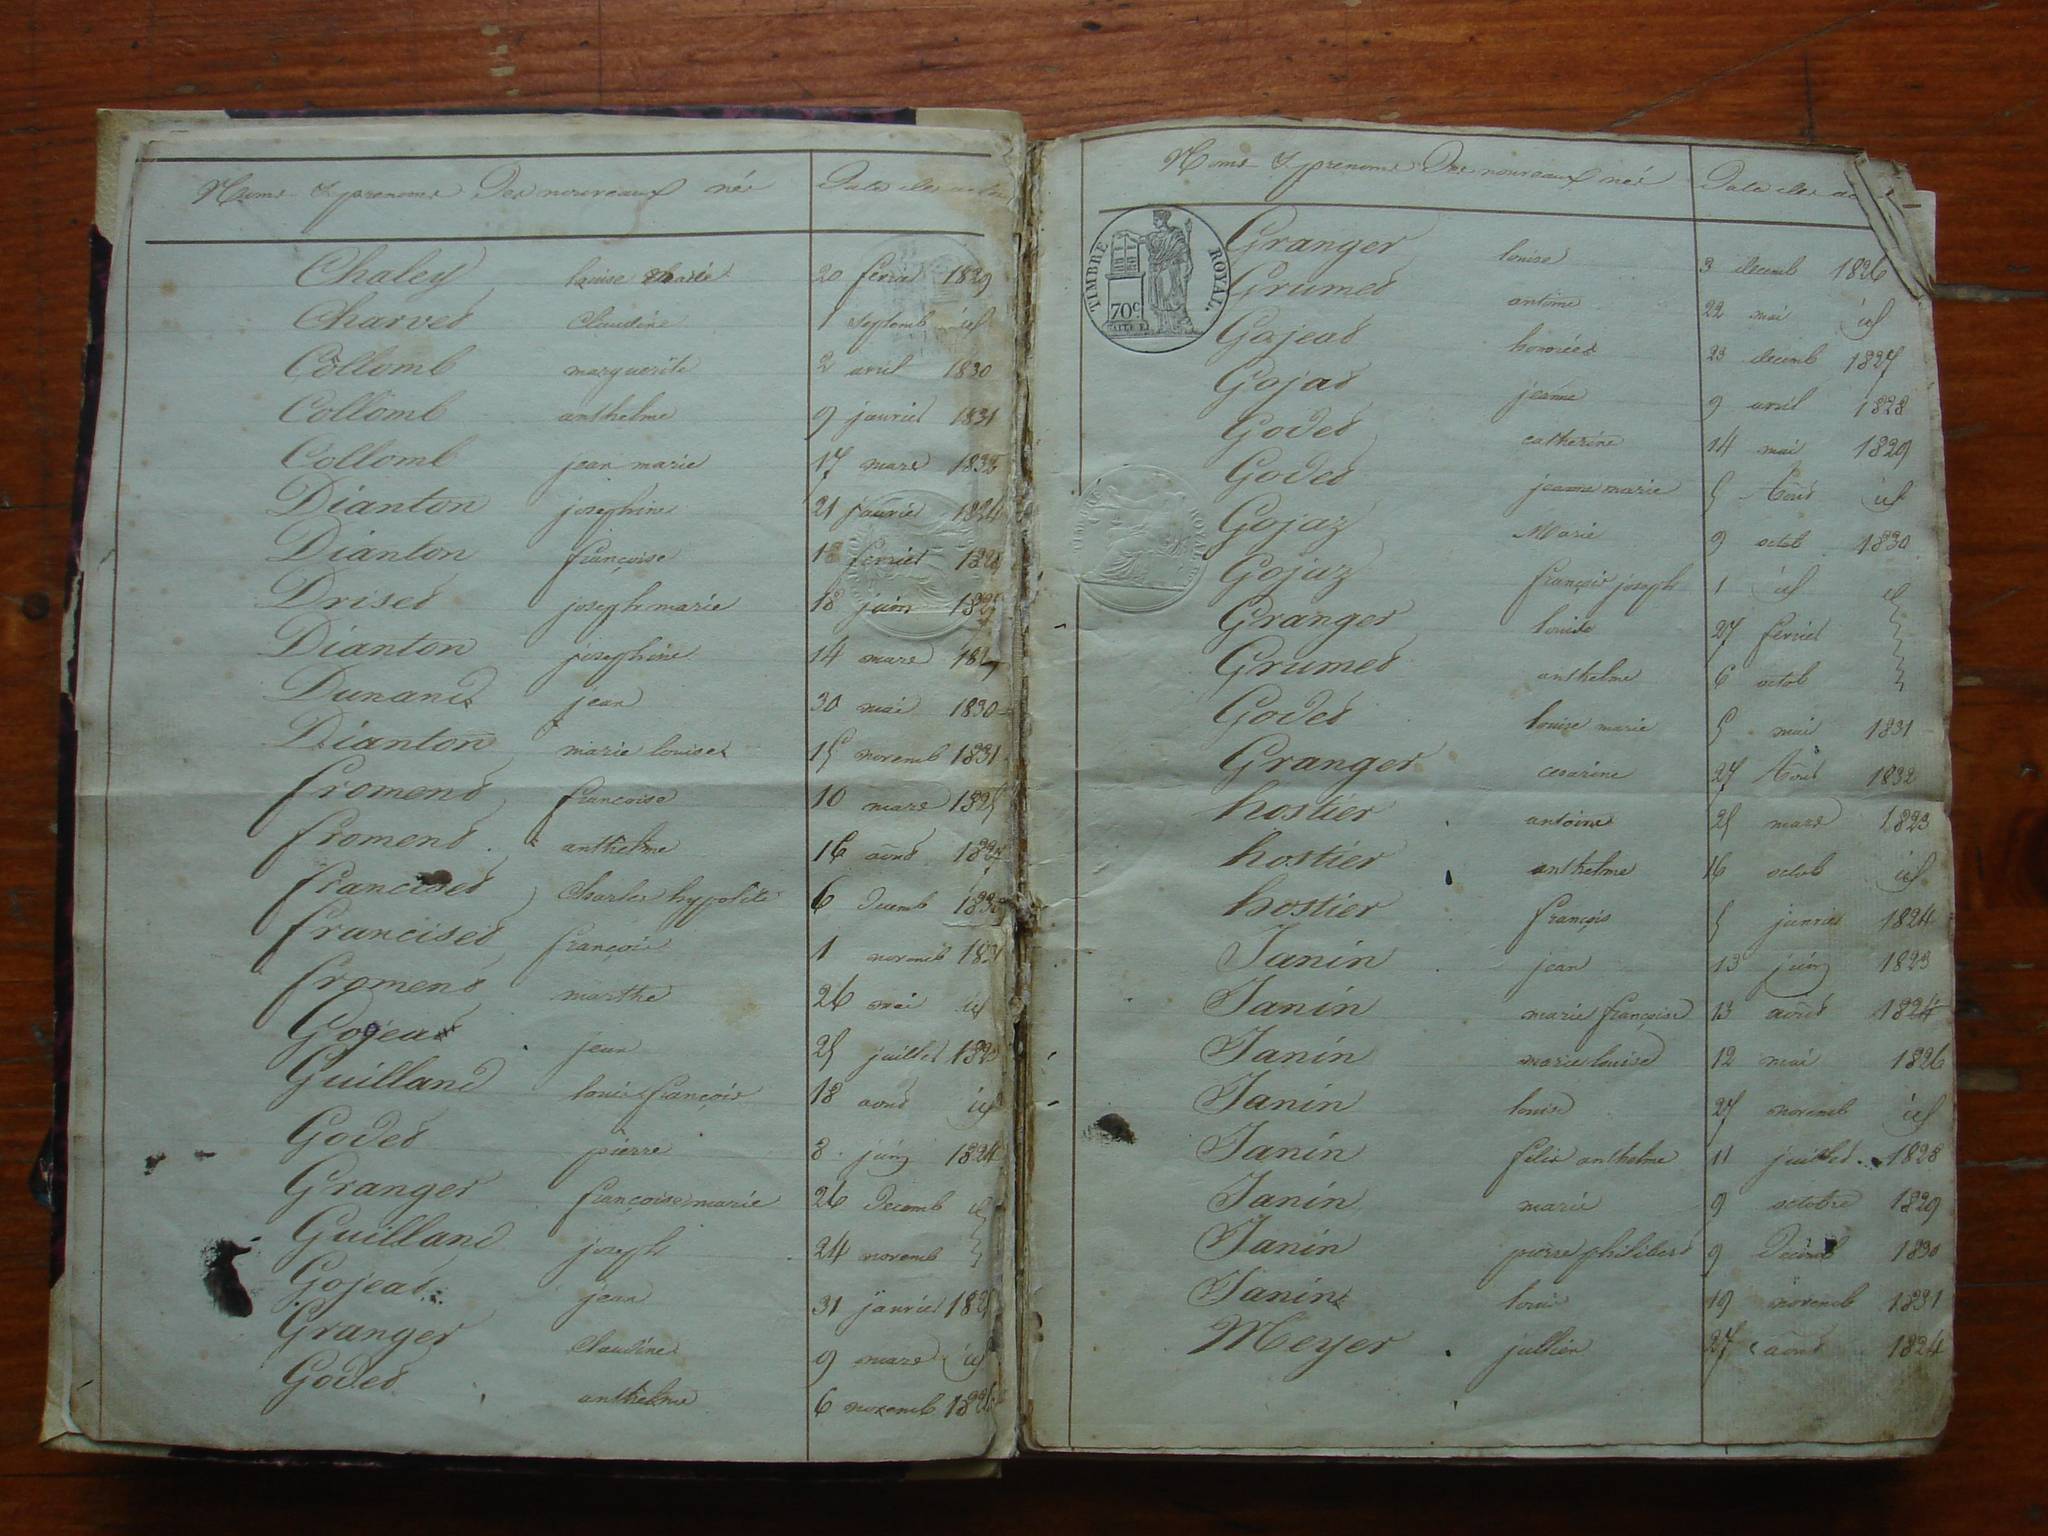 Noms & prenoms Des nouveaux nés Date des actes
Chaley louise marie 20 fevrier 1829
Charvet Claudine 1 septemb id
Collomb marguerite 2 avril 1830
Collomb anthelme 9 janvier 1831
Collomb jean marie 17 mars 1832
Dianton josephine 21 janvier 1824
Dianton françoise 18 fevrier
Driset joseph marie 18 juin
Dianton josephine 14 mars
Dunand jean 30 mai 1830
Dianton marie louise 15 novemb 1831
froment françoise 10 mars 1825
froment anthelme 16 aout 1827
franciset Charles hypolite 6 Decemb
franciset françois 1 novemb 1831
froment marthe 26 mai id
Gojeat jean 25 juillet 1823
Guilland louis françois 18 aout id
Godet pierre 8 juin 1824
Granger françoise marie 26 Decemb id
Guilland joseph 24 novemb
Gojeat jean 31 janvier 1825
Granger Claudine 9 mars id
Godet anthelme 6 novemb 1826
Noms & prenoms Des nouveaux nés Date des
TIMBRE ROYAL.
70c
Granger louise 3 decemb 1826
Grumet antoine 22 mai id
Gojeat honorée 23 decemb 1827
Gojat jeanne 9 avril 1828
Godet catherine 14 mai 1829
Godet jeanne marie 5 Aout id
Gojaz Marie 9 octob 1830
Gojaz françois joseph 1 id id
Granger louise 27 fevrier
Grumet anthelme 6 octob
Godet louise marie 5 mai 1831
Granger cesarine 27 1832
hostier antoine 25 mars 1823
hostier anthelme 16 octob id
hostier françois 5 janvier 1824
Janin jean 13 juin 1823
Janin marie françoise 13 aout 1824
Janin marie louise 12 mai 1826
Janin louise 27 novemb id
Janin felix anthelme 11 juillet 1828
Janin marie 9 octobre 1829
Janin pierre philibert 9 Decemb 1830
Janin louis 19 novemb 1831
Meyer jullien 27 aout 1824